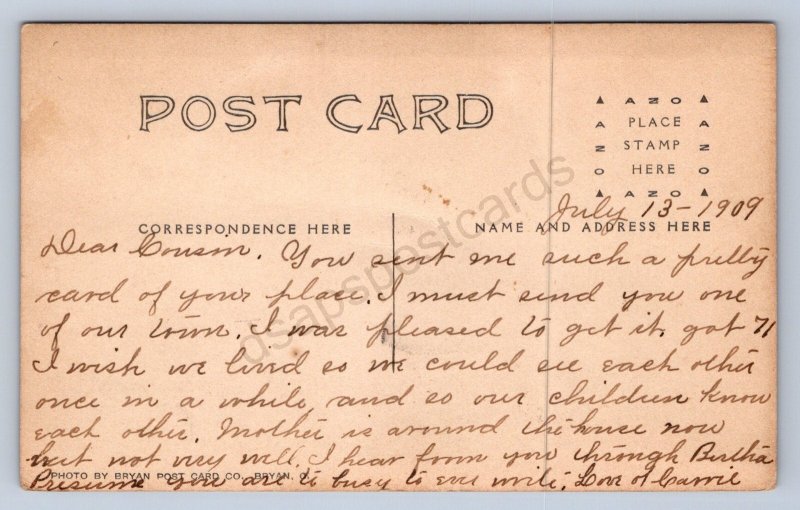 POST CARD
▲ AZO ▲
A PLACE A
Z STAMP Z
O HERE O
▲ AZO ▲
July 13-1909
CORRESPONDENCE HERE
NAME AND ADDRESS HERE
Dear Cousin. You sent me such a pretty
card of your place. I must send you one
of our town. I was pleased to get it. got 71
I wish we lived so we could see each other
once in a while, and so our children know
each other. Mother is around the house now
but not very well. I hear form you through Bertha
PHOTO BY BRYAN POST CARD CO., BRYAN, O.
Presume you are to busy to ever write. Love of Carrie
dsapspostcards